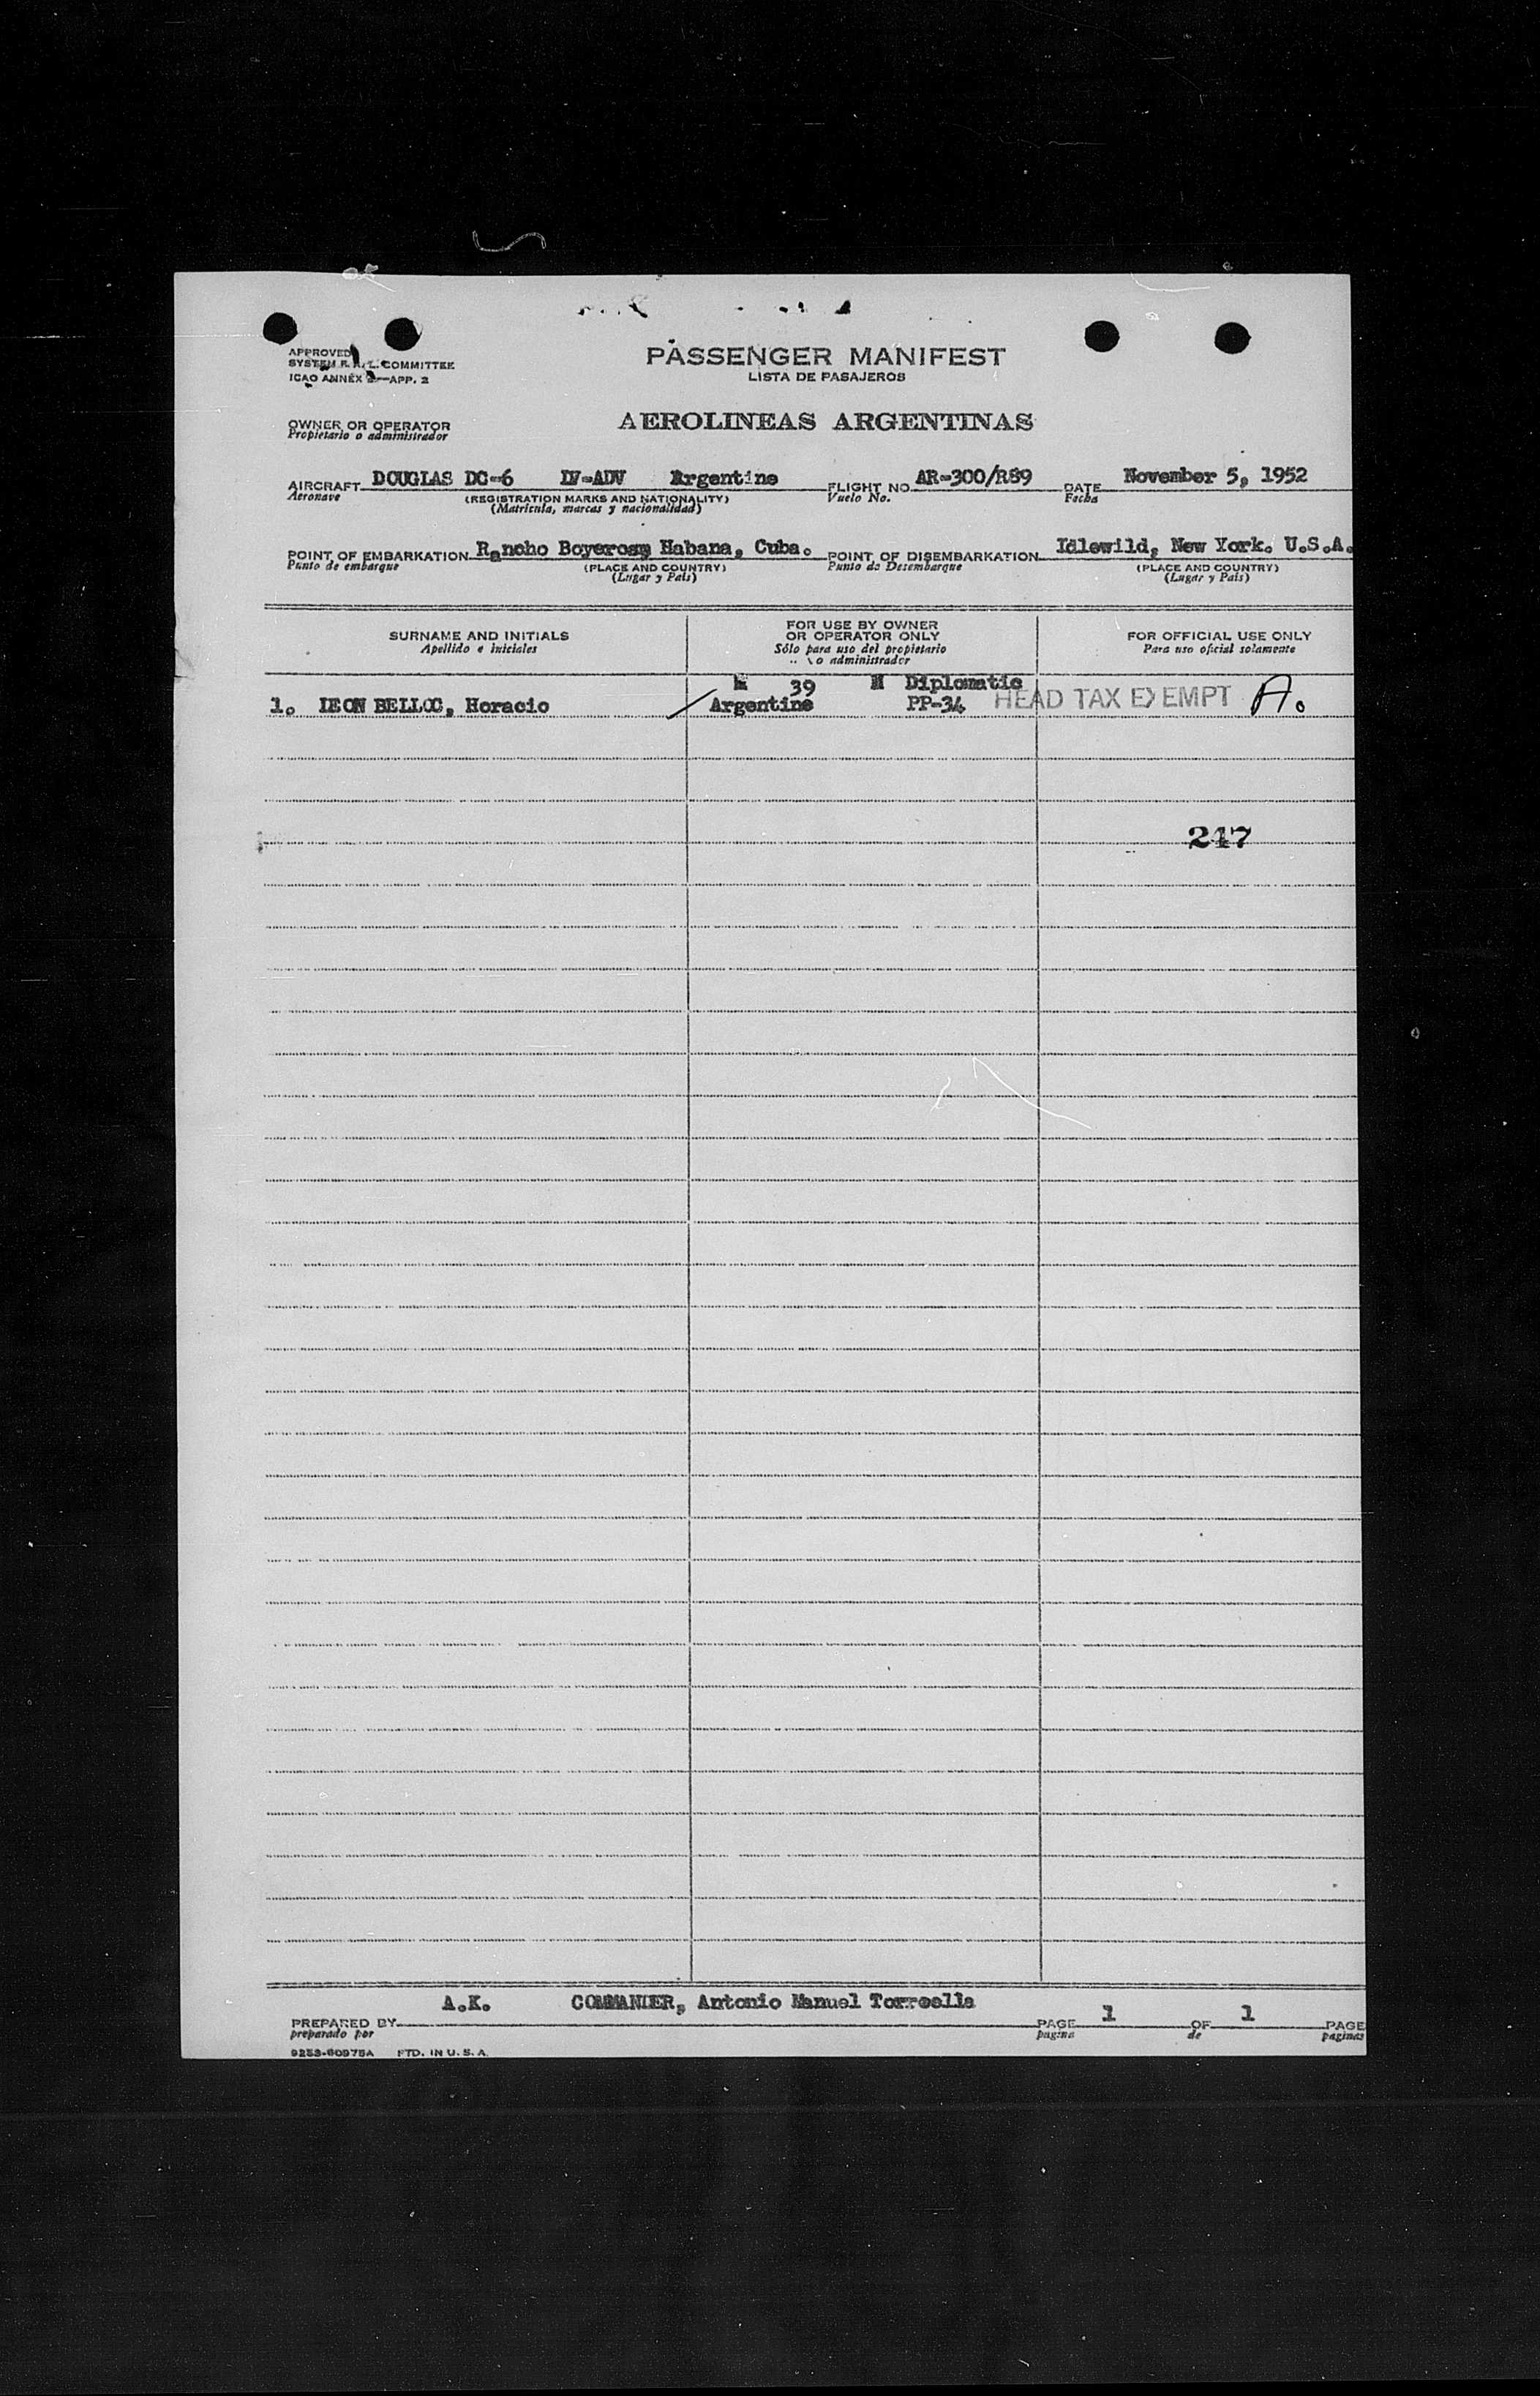 PASSENGER MANIFEST
LISTA DE PASAJEROS
APPROVED
SYSTEM F. A. L. COMMITTEE
ICAO ANNEX 9—APP. 2
AEROLINEAS ARGENTINAS
OWNER OR OPERATOR
Propietario o administrador
AIRCRAFT DOUGLAS DC-6 LV-ADV Argentine FLIGHT NO. AR-300/R89 DATE November 5, 1952
Aeronave (REGISTRATION MARKS AND NATIONALITY) Vuelo No. Fecha
(Matrícula, marcas y nacionalidad)
POINT OF EMBARKATION Rancho Boyeros, Habana, Cuba. POINT OF DISEMBARKATION Idlewild, New York. U.S.A.
Punto de embarque (PLACE AND COUNTRY) Punto de Desembarque (PLACE AND COUNTRY)
(Lugar y País) (Lugar y País)
SURNAME AND INITIALS
Apellido e iniciales
FOR USE BY OWNER
OR OPERATOR ONLY
Sólo para uso del propietario
o administrador
FOR OFFICIAL USE ONLY
Para uso oficial solamente
39 M Diplomatic
1. LEON BELLOC, Horacio Argentine PP-34 HEAD TAX EXEMPT A.
247
A.K. COMMANDER, Antonio Manuel Torreella
PREPARED BY PAGE 1 OF 1 PAGE
preparado por pagina de paginas
9253-60975A PTD. IN U. S. A.